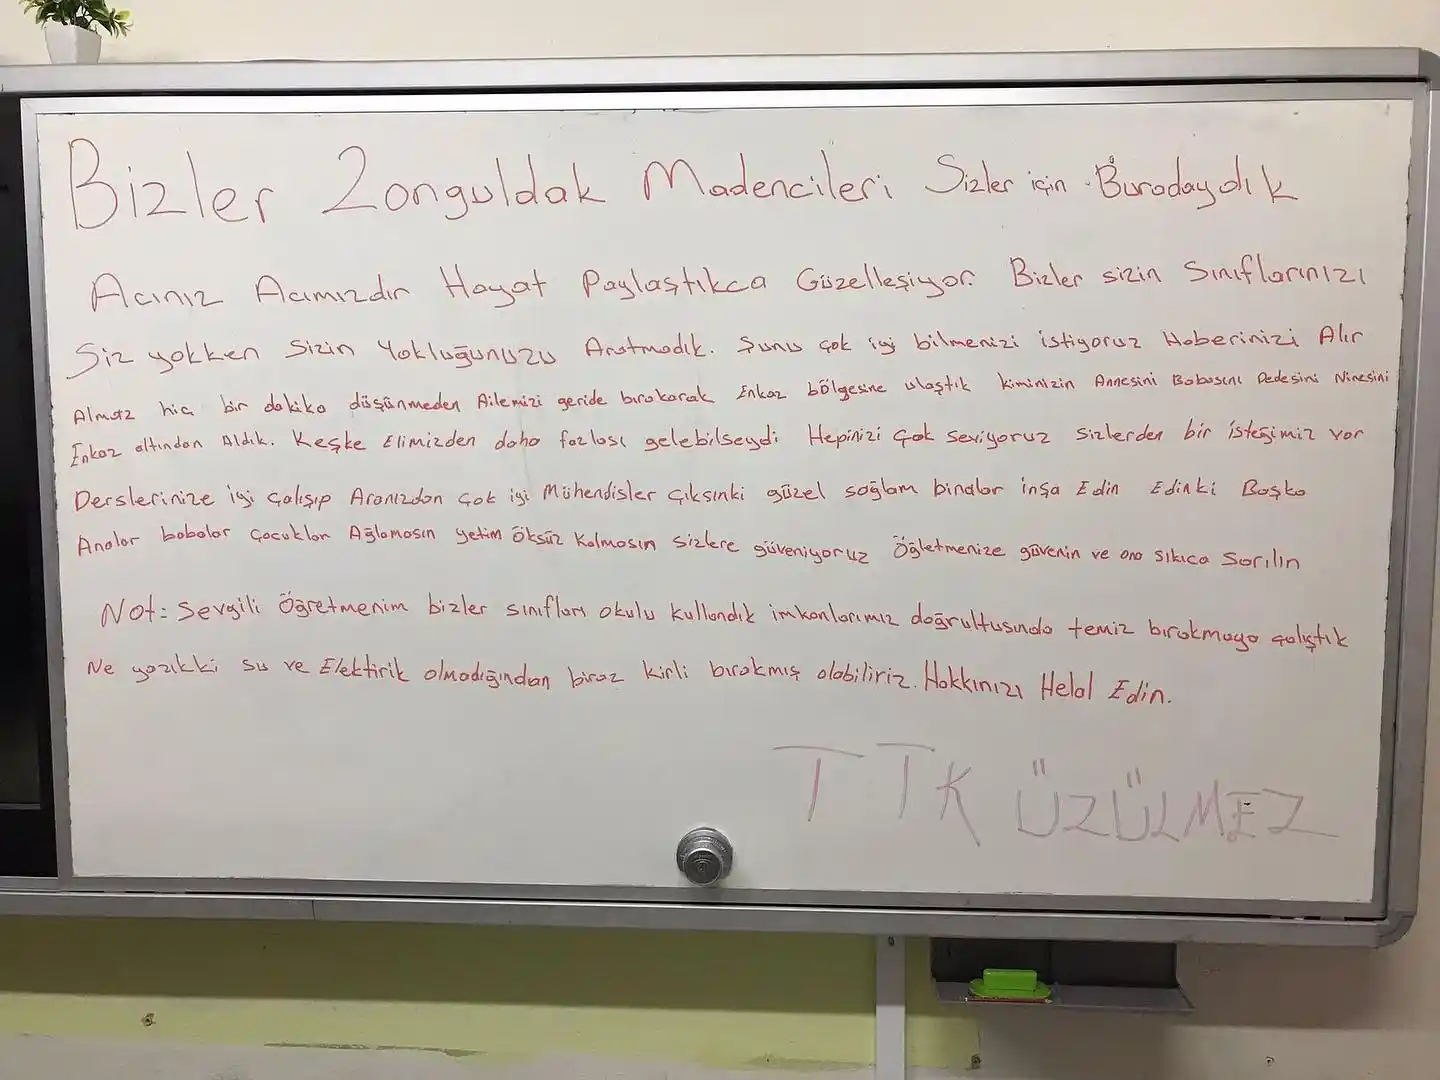 Bizler Zonguldak Madencileri Sizler için Buradaydık
Acınız Acımızdır Hayat Paylaştıkca Güzelleşiyor. Bizler sizin Sınıflarınızı
Siz yokken Sizin Yokluğunuzu Aratmadık. Şunu çok iyi bilmenizi istiyoruz Haberinizi Alır
Almaz hiç bir dakika düşünmeden Ailemizi geride bırakarak Enkaz bölgesine ulaştık kiminizin Annesini Babasını Dedesini Ninesini
Enkaz altından Aldık. Keşke Elimizden daha fazlası gelebilseydi Hepinizi Çok seviyoruz sizlerden bir isteğimiz var
Derslerinize iyi çalışıp Aranızdan çok iyi Mühendisler çıksınki güzel sağlam binalar inşa Edin Edinki Başka
Analar babalar çocuklar Ağlamasın yetim öksüz kalmasın sizlere güveniyoruz Öğletmenize güvenin ve ona sıkıca sarılın
Not: Sevgili Öğretmenim bizler sınıfları okulu kullandık imkanlarımız doğrultusunda temiz bırakmaya çalıştık
Ne yazıkki su ve Elektirik olmadığından biraz kirli bırakmış olabiliriz. Hakkınızı Helal Edin.
TTK ÜZÜLMEZ